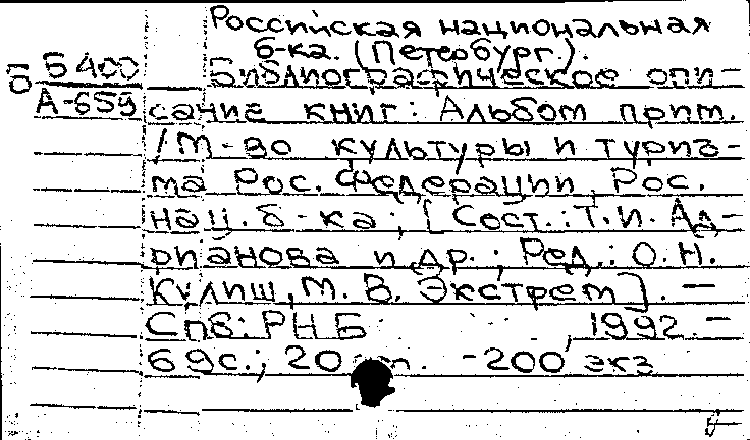 Российская национальная
б-ка. (Петербург.).
Б 400
Библиографическое опи-
А-659
сание книг: Альбом прим.
/М-во культуры и туриз-
ма Рос. Федерации, Рос.
нац. б-ка; [Сост.: Т.И. Ад-
рианова и др.; Ред.: О.Н.
Кулиш, М.В. Экстрем]. —
Спб: РНБ, 1992. —
69с.; 20 -200 экз